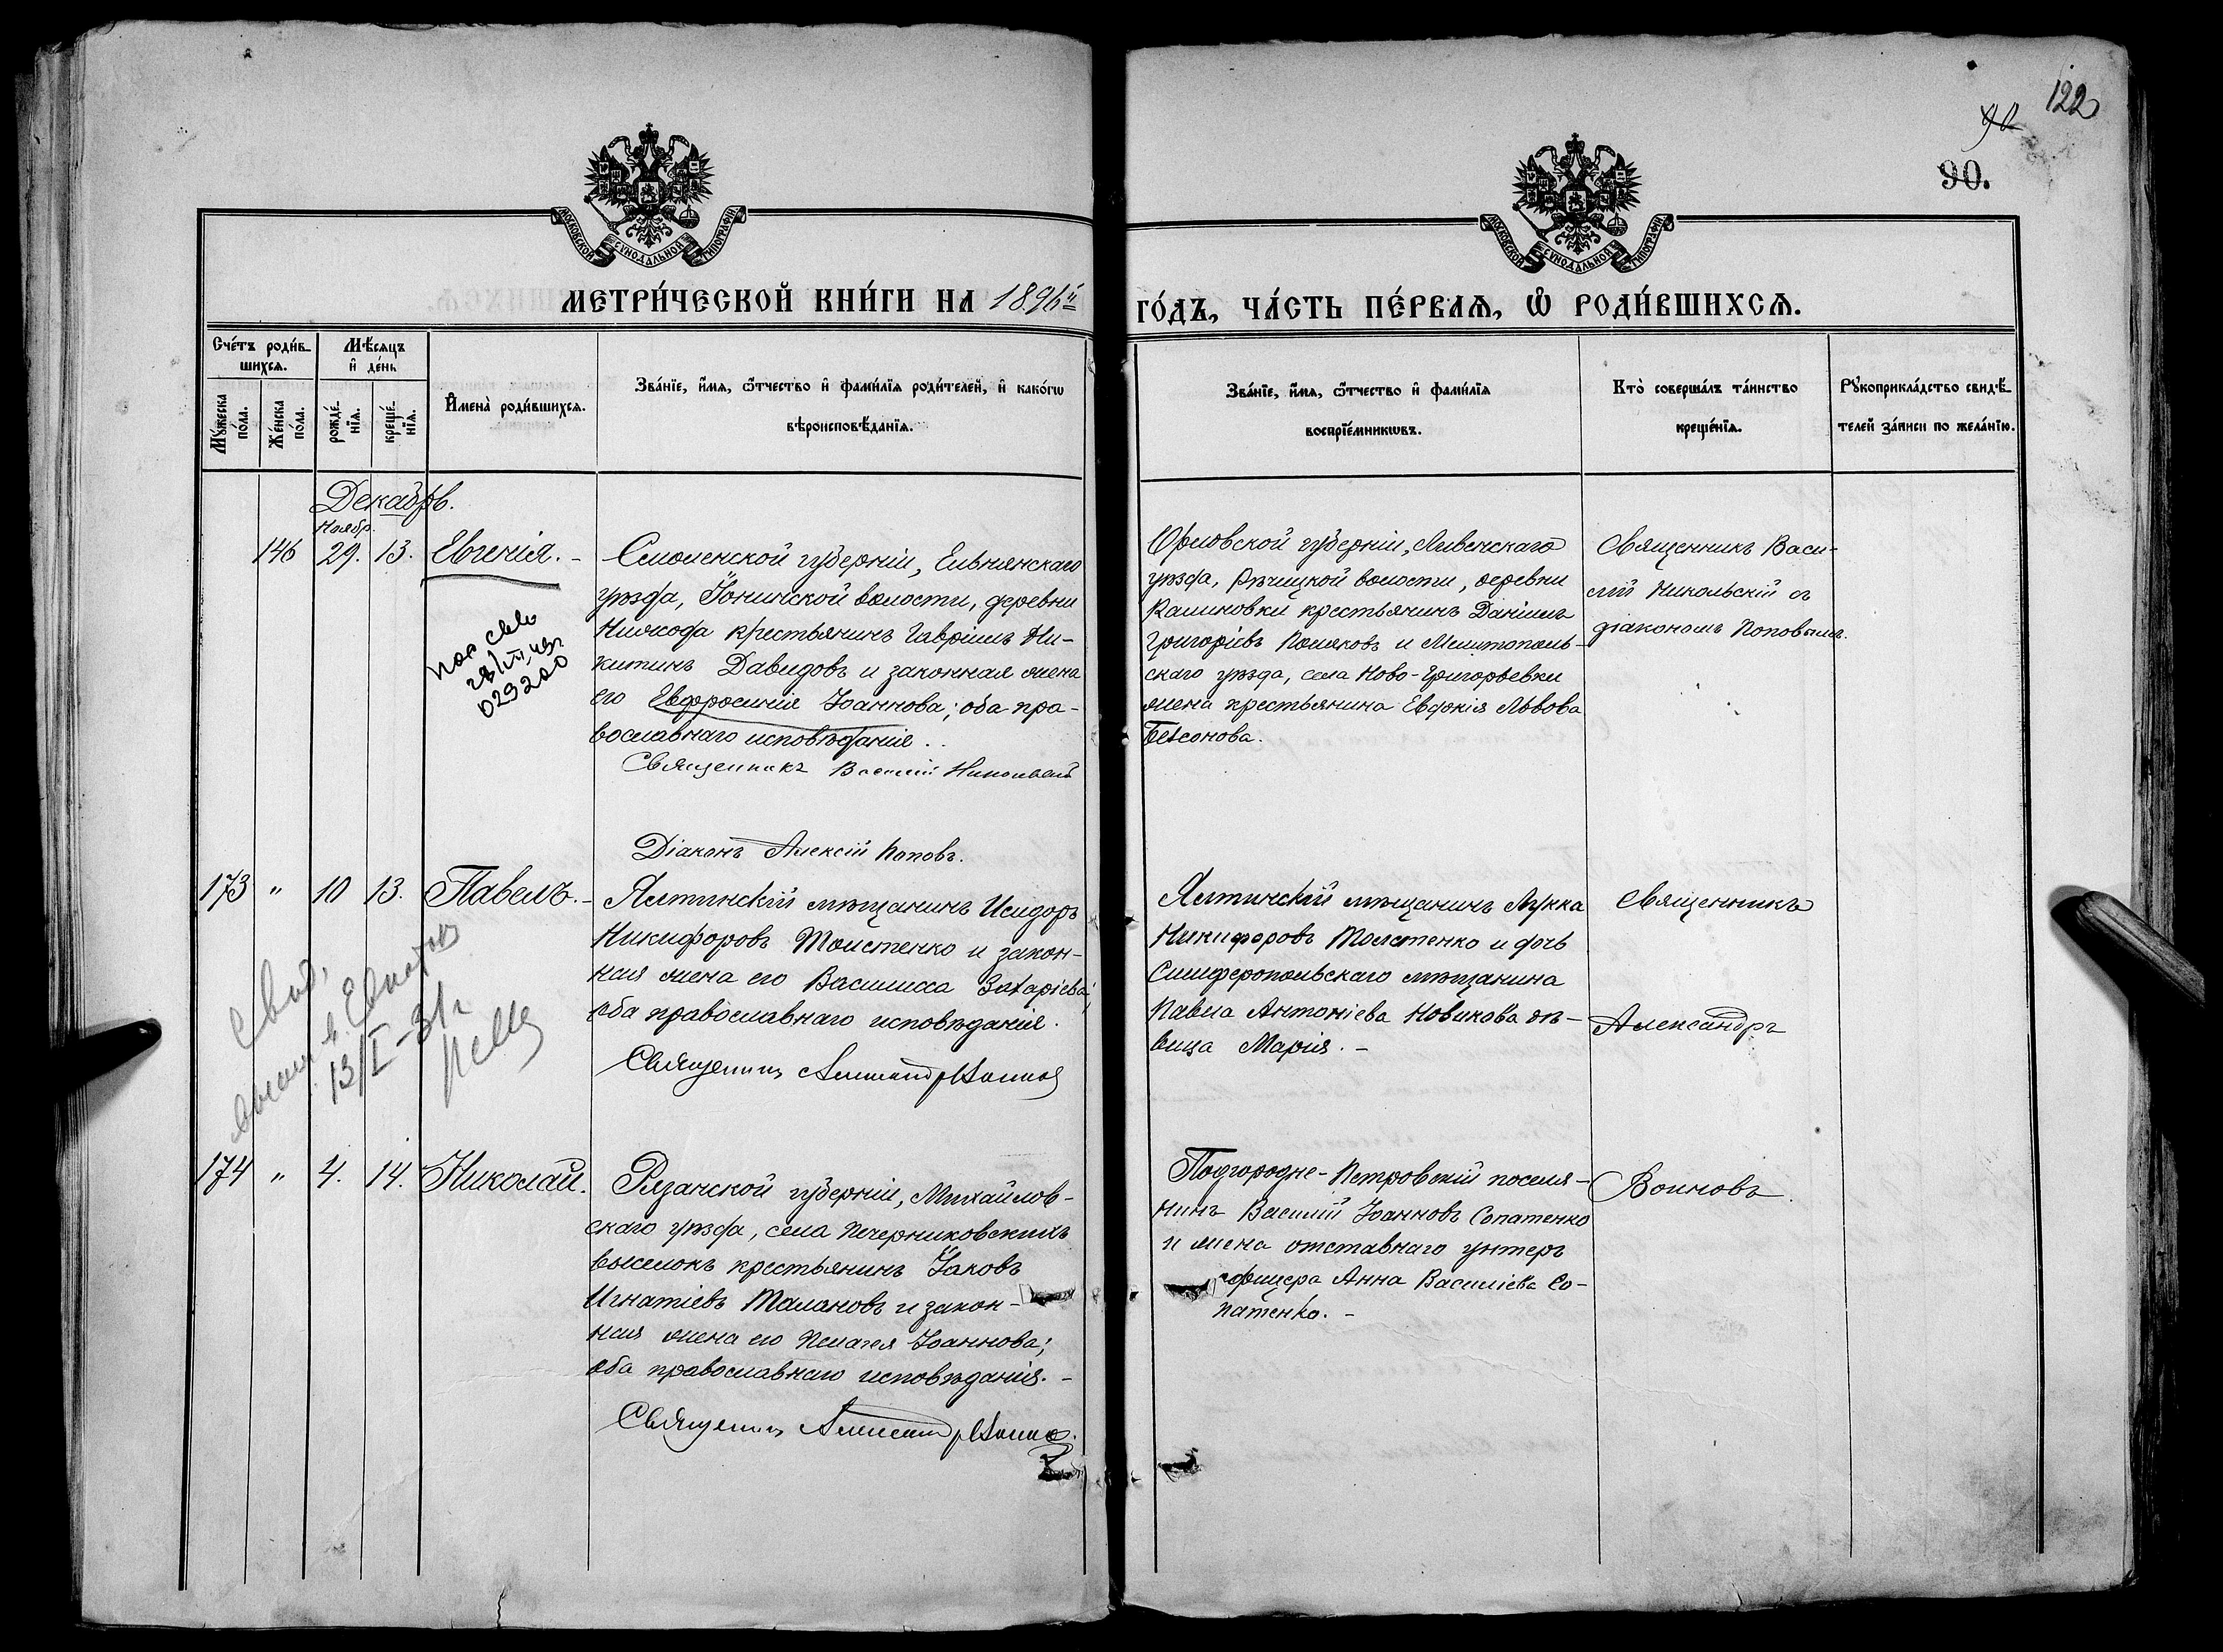 122
90
90.
МОСКОВСКОЙ СѴНОДАЛЬНОЙ ТИПОГРАФІИ.
МОСКОВСКОЙ СѴНОДАЛЬНОЙ ТИПОГРАФІИ.
МЕТРИ́ЧЕСКОЙ КНИ́ГИ НА 1896й
ГО́ДЪ, ЧА́СТЬ ПЕ́РВАѦ, Ѿ РОДИ́ВШИХСѦ.
Сче́тъ роди́в-
шихсѧ.
Мꙋ́жеска
по́ла.
Же́нска
по́ла.
Мѣ́сѧцъ
и҆ де́нь
рожде́-
нїѧ.
креще́-
нїѧ.
И҆мена̀ роди́вшихсѧ.
Зва́нїе, и҆́мѧ, ѻ҆́тчество и҆ фами́лїѧ роди́телей, и҆ како́гѡ
вѣроисповѣ́данїѧ.
Зва́нїе, и҆́мѧ, ѻ҆́тчество и҆ фами́лїѧ
воспрїе́мникѡвъ.
Кто̀ соверша́лъ та́инство
креще́нїѧ.
Рꙋкоприкла́дство свидѣ́-
телей за́писи по жела́нїю.
Декабрь.
Ноябр.
146 29. 13. Евгенія. -
Смоленской губерніи, Ельнянскаго
уѣзда, Іонинской волости, деревни
крестьянинъ Гавріилъ Ни-
китинъ Давидовъ и законная жена
его Евфросинія Іоаннова; оба пра-
вославнаго исповѣданія..
Священникъ Василій Никольскій
Діаконъ Алексій Поповъ.
029200
Орловской губерніи, Ливенскаго
уѣзда, Рѣчицкой волости, деревни
Калиновки крестьянинъ Даніилъ
Григоріевъ Поляковъ и Мелитополь-
скаго уѣзда, села Ново-Григорьевки
жена крестьянина Евдокія Львова
Безсонова.
Священникъ Васи-
лій Никольскій съ
діакономъ Поповымъ.
173 " 10 13. Павелъ. -
Ялтинскій мѣщанинъ Исидоръ
Никифоровъ Толстенко и закон-
ная жена его Василисса Захаріева;
оба православнаго исповѣданія.
Священникъ Александръ Воиновъ
13/I-31г
Ялтинскій мѣщанинъ Лукка
Никифоровъ Толстенко и дочь
Симферопольскаго мѣщанина
Павла Антоніева Новикова дѣ-
вица Марія. -
Священникъ
Александръ
Воиновъ.
174 " 4. 14. Николай.
Рязанской губерніи, Михайлов-
скаго уѣзда, села Печерниковскихъ
выселокъ крестьянинъ Іаковъ
Игнатіевъ Талановъ и закон-
ная жена его Пелагея Іоаннова;
оба православнаго исповѣданія. -
Священникъ Александръ Воиновъ.
Подгородне-Петровскій поселя-
нинъ Василій Іоанновъ Сопатенко
и жена отставнаго унтеръ
офицера Анна Василіева Со-
патенко. -